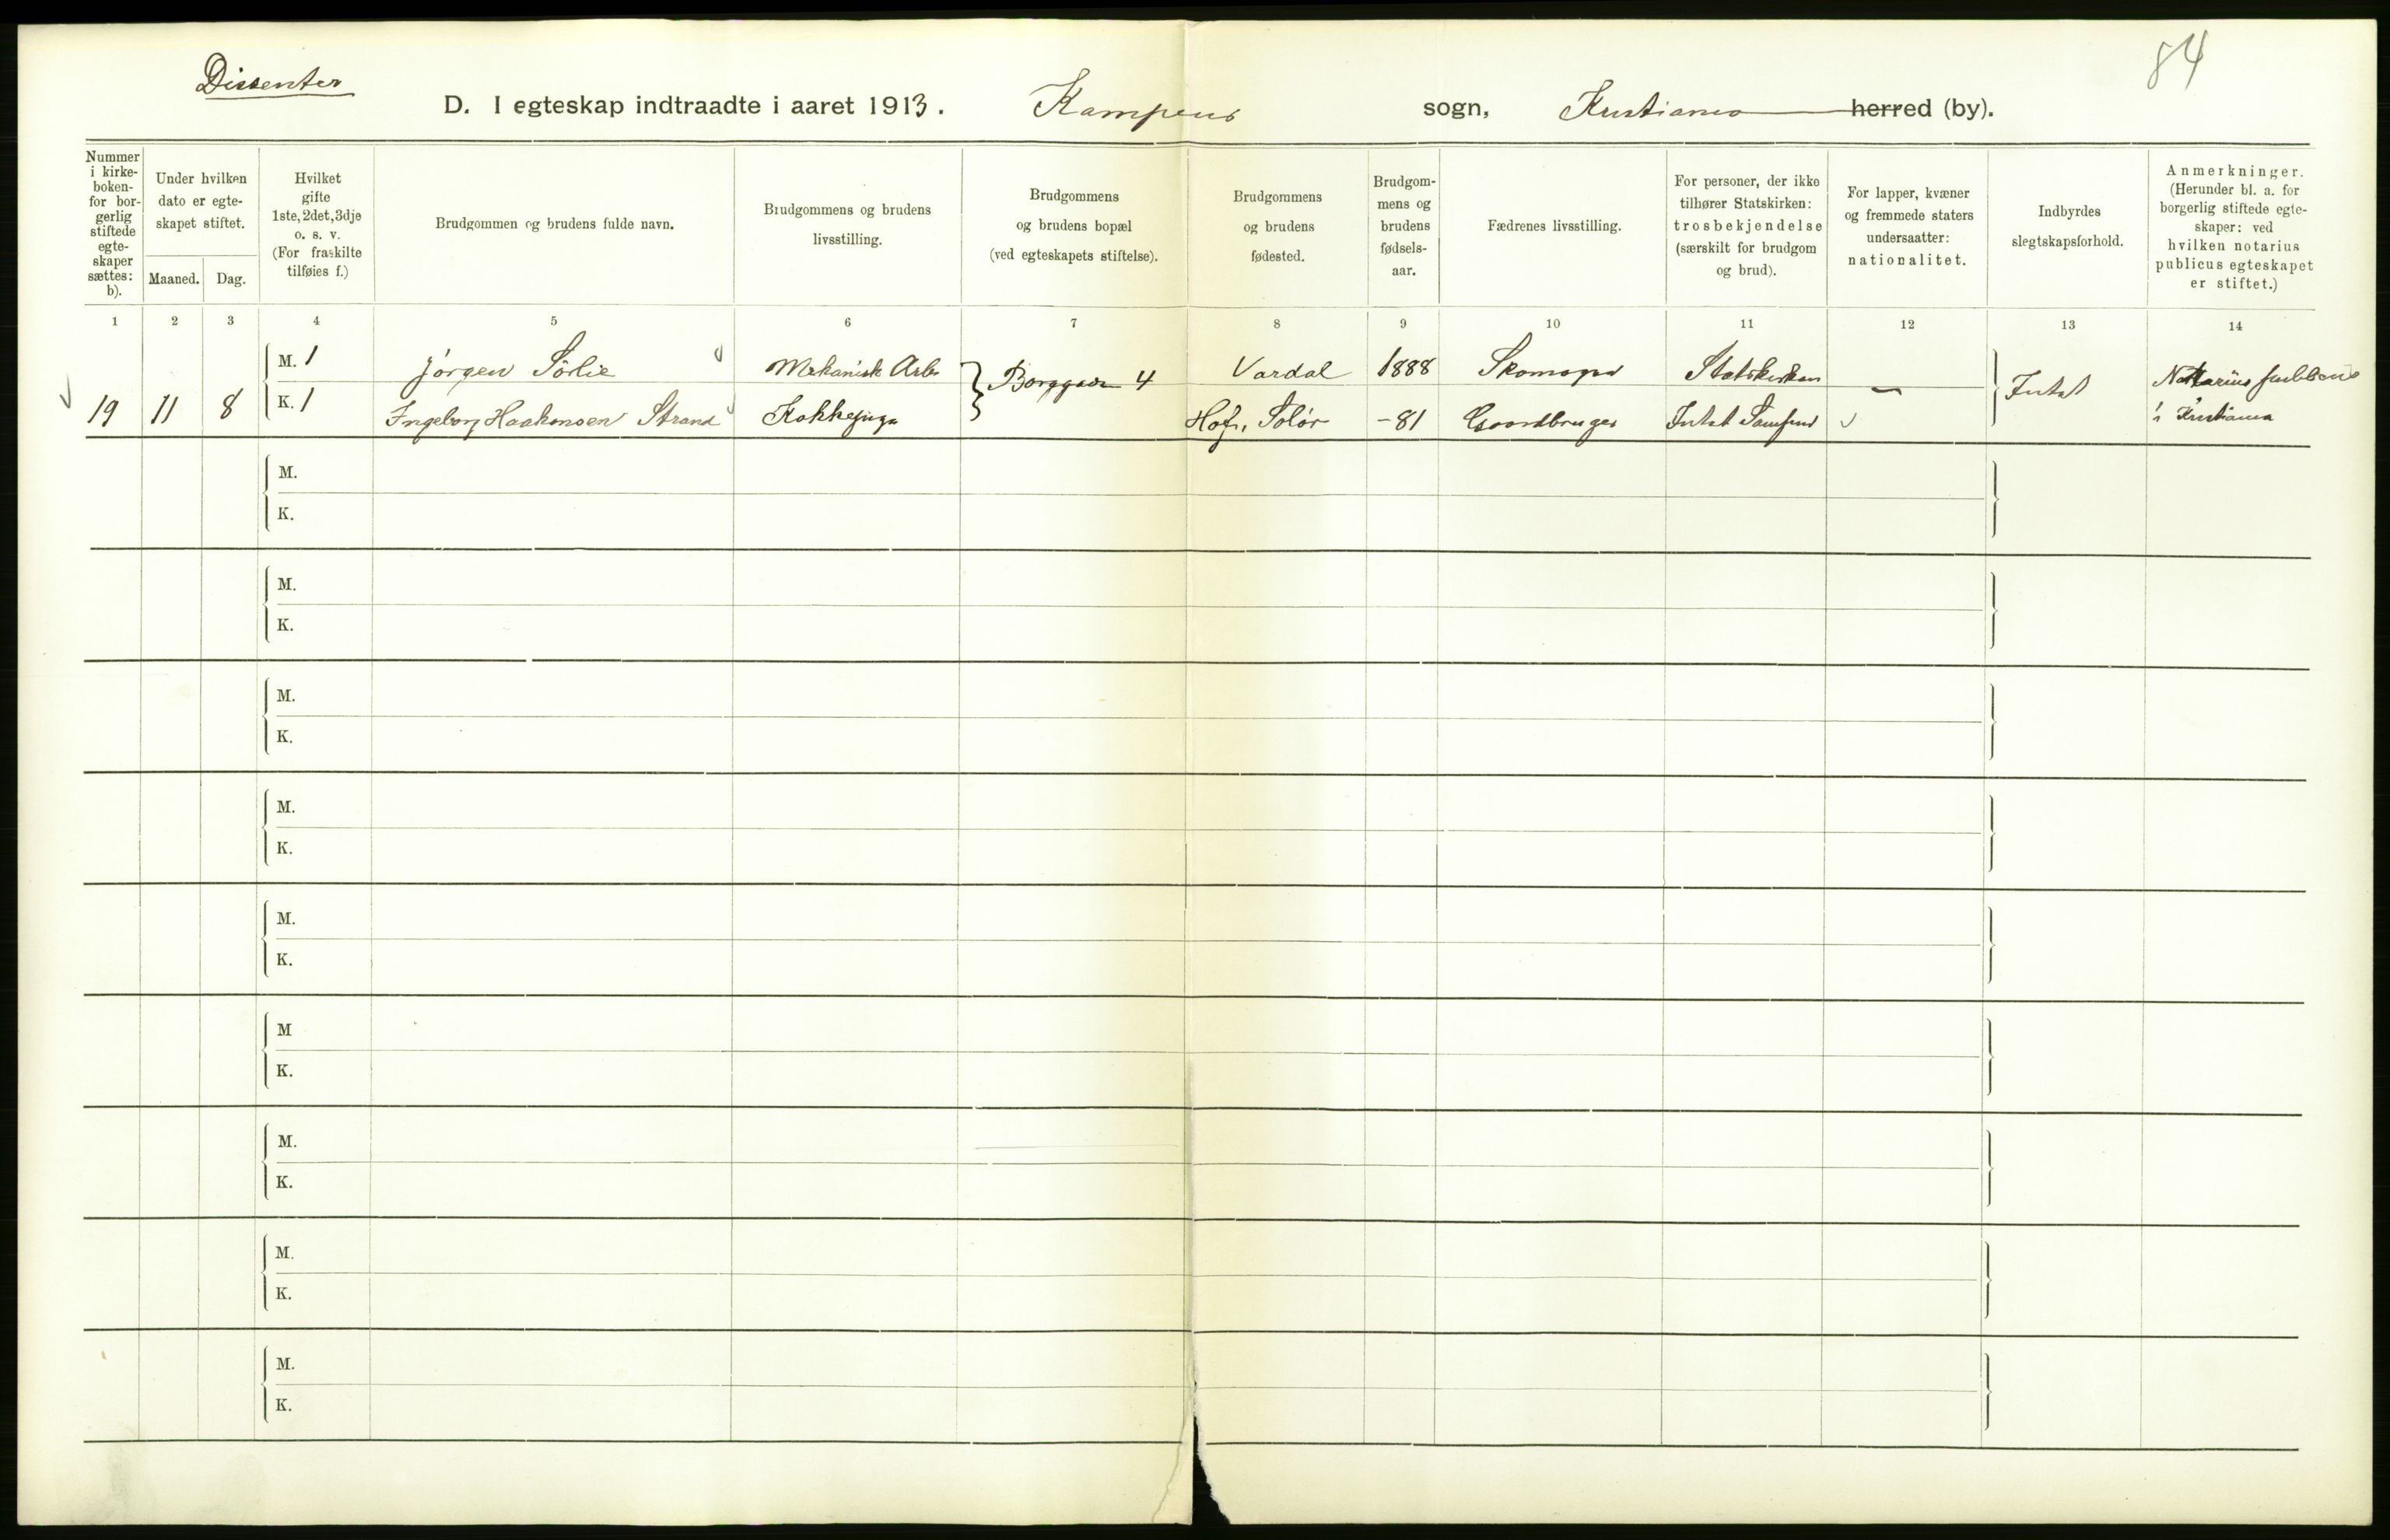 84
Dissenter
D. I egteskap indtraadte i aaret 1913. Kampens sogn, Kristiania herred (by).
Nummer i kirke-boken- for bor-gerlig stiftede egte-skaper sættes: b).
Under hvilken dato er egte-skapet stiftet.
Maaned. Dag.
Hvilket gifte 1ste, 2det, 3dje o. s. v. (For fraskilte tilføies f.)
Brudgommen og brudens fulde navn.
Brudgommens og brudens livsstilling.
Brudgommens og brudens bopæl (ved egteskapets stiftelse).
Brudgommens og brudens fødested.
Brudgom-mens og brudens fødsels-aar.
Fædrenes livsstilling.
For personer, der ikke tilhører Statskirken: trosbekjendelse (særskilt for brudgom og brud).
For lapper, kvæner og fremmede staters undersaatter: nationalitet.
Indbyrdes slegtskapsforhold.
Anmerkninger. (Herunder bl. a. for borgerlig stiftede egte-skaper: ved hvilken notarius publicus egteskapet er stiftet.)
1 2 3 4 5 6 7 8 9 10 11 12 13 14
M. 1 Jørgen Sørlie Mekanisk Arb. Borggaden 4 Vardal 1888 Skomager Statskirken — Intet Notarius publicus
19 11 8 K. 1 Ingeborg Haakonsen Strand Kokkepige Hof, Solør -81 Gaardbruger Intet Samfund i Kristiania
M.
K.
M.
K.
M.
K.
M.
K.
M.
K.
M
K.
M.
K.
M.
K.
M.
K.